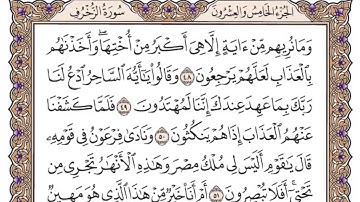 الجزء الخامس والعشرون
سورة الزخرف
وَمَا نُرِيهِم مِّنْ ءَايَةٍ إِلَّا هِىَ أَكْبَرُ مِنْ أُخْتِهَا ۖ وَأَخَذْنَٰهُم
بِٱلْعَذَابِ لَعَلَّهُمْ يَرْجِعُونَ ٤٨ وَقَالُوا۟ يَٰٓأَيُّهَ ٱلسَّاحِرُ ٱدْعُ لَنَا
رَبَّكَ بِمَا عَهِدَ عِندَكَ إِنَّنَا لَمُهْتَدُونَ ٤٩ فَلَمَّا كَشَفْنَا
عَنْهُمُ ٱلْعَذَابَ إِذَا هُمْ يَنكُثُونَ ٥٠ وَنَادَىٰ فِرْعَوْنُ فِى قَوْمِهِۦ
قَالَ يَٰقَوْمِ أَلَيْسَ لِى مُلْكُ مِصْرَ وَهَٰذِهِ ٱلْأَنْهَٰرُ تَجْرِى مِن
تَحْتِىٓ ۖ أَفَلَا تُبْصِرُونَ ٥١ أَمْ أَنَا۠ خَيْرٌ مِّنْ هَٰذَا ٱلَّذِى هُوَ مَهِينٌ